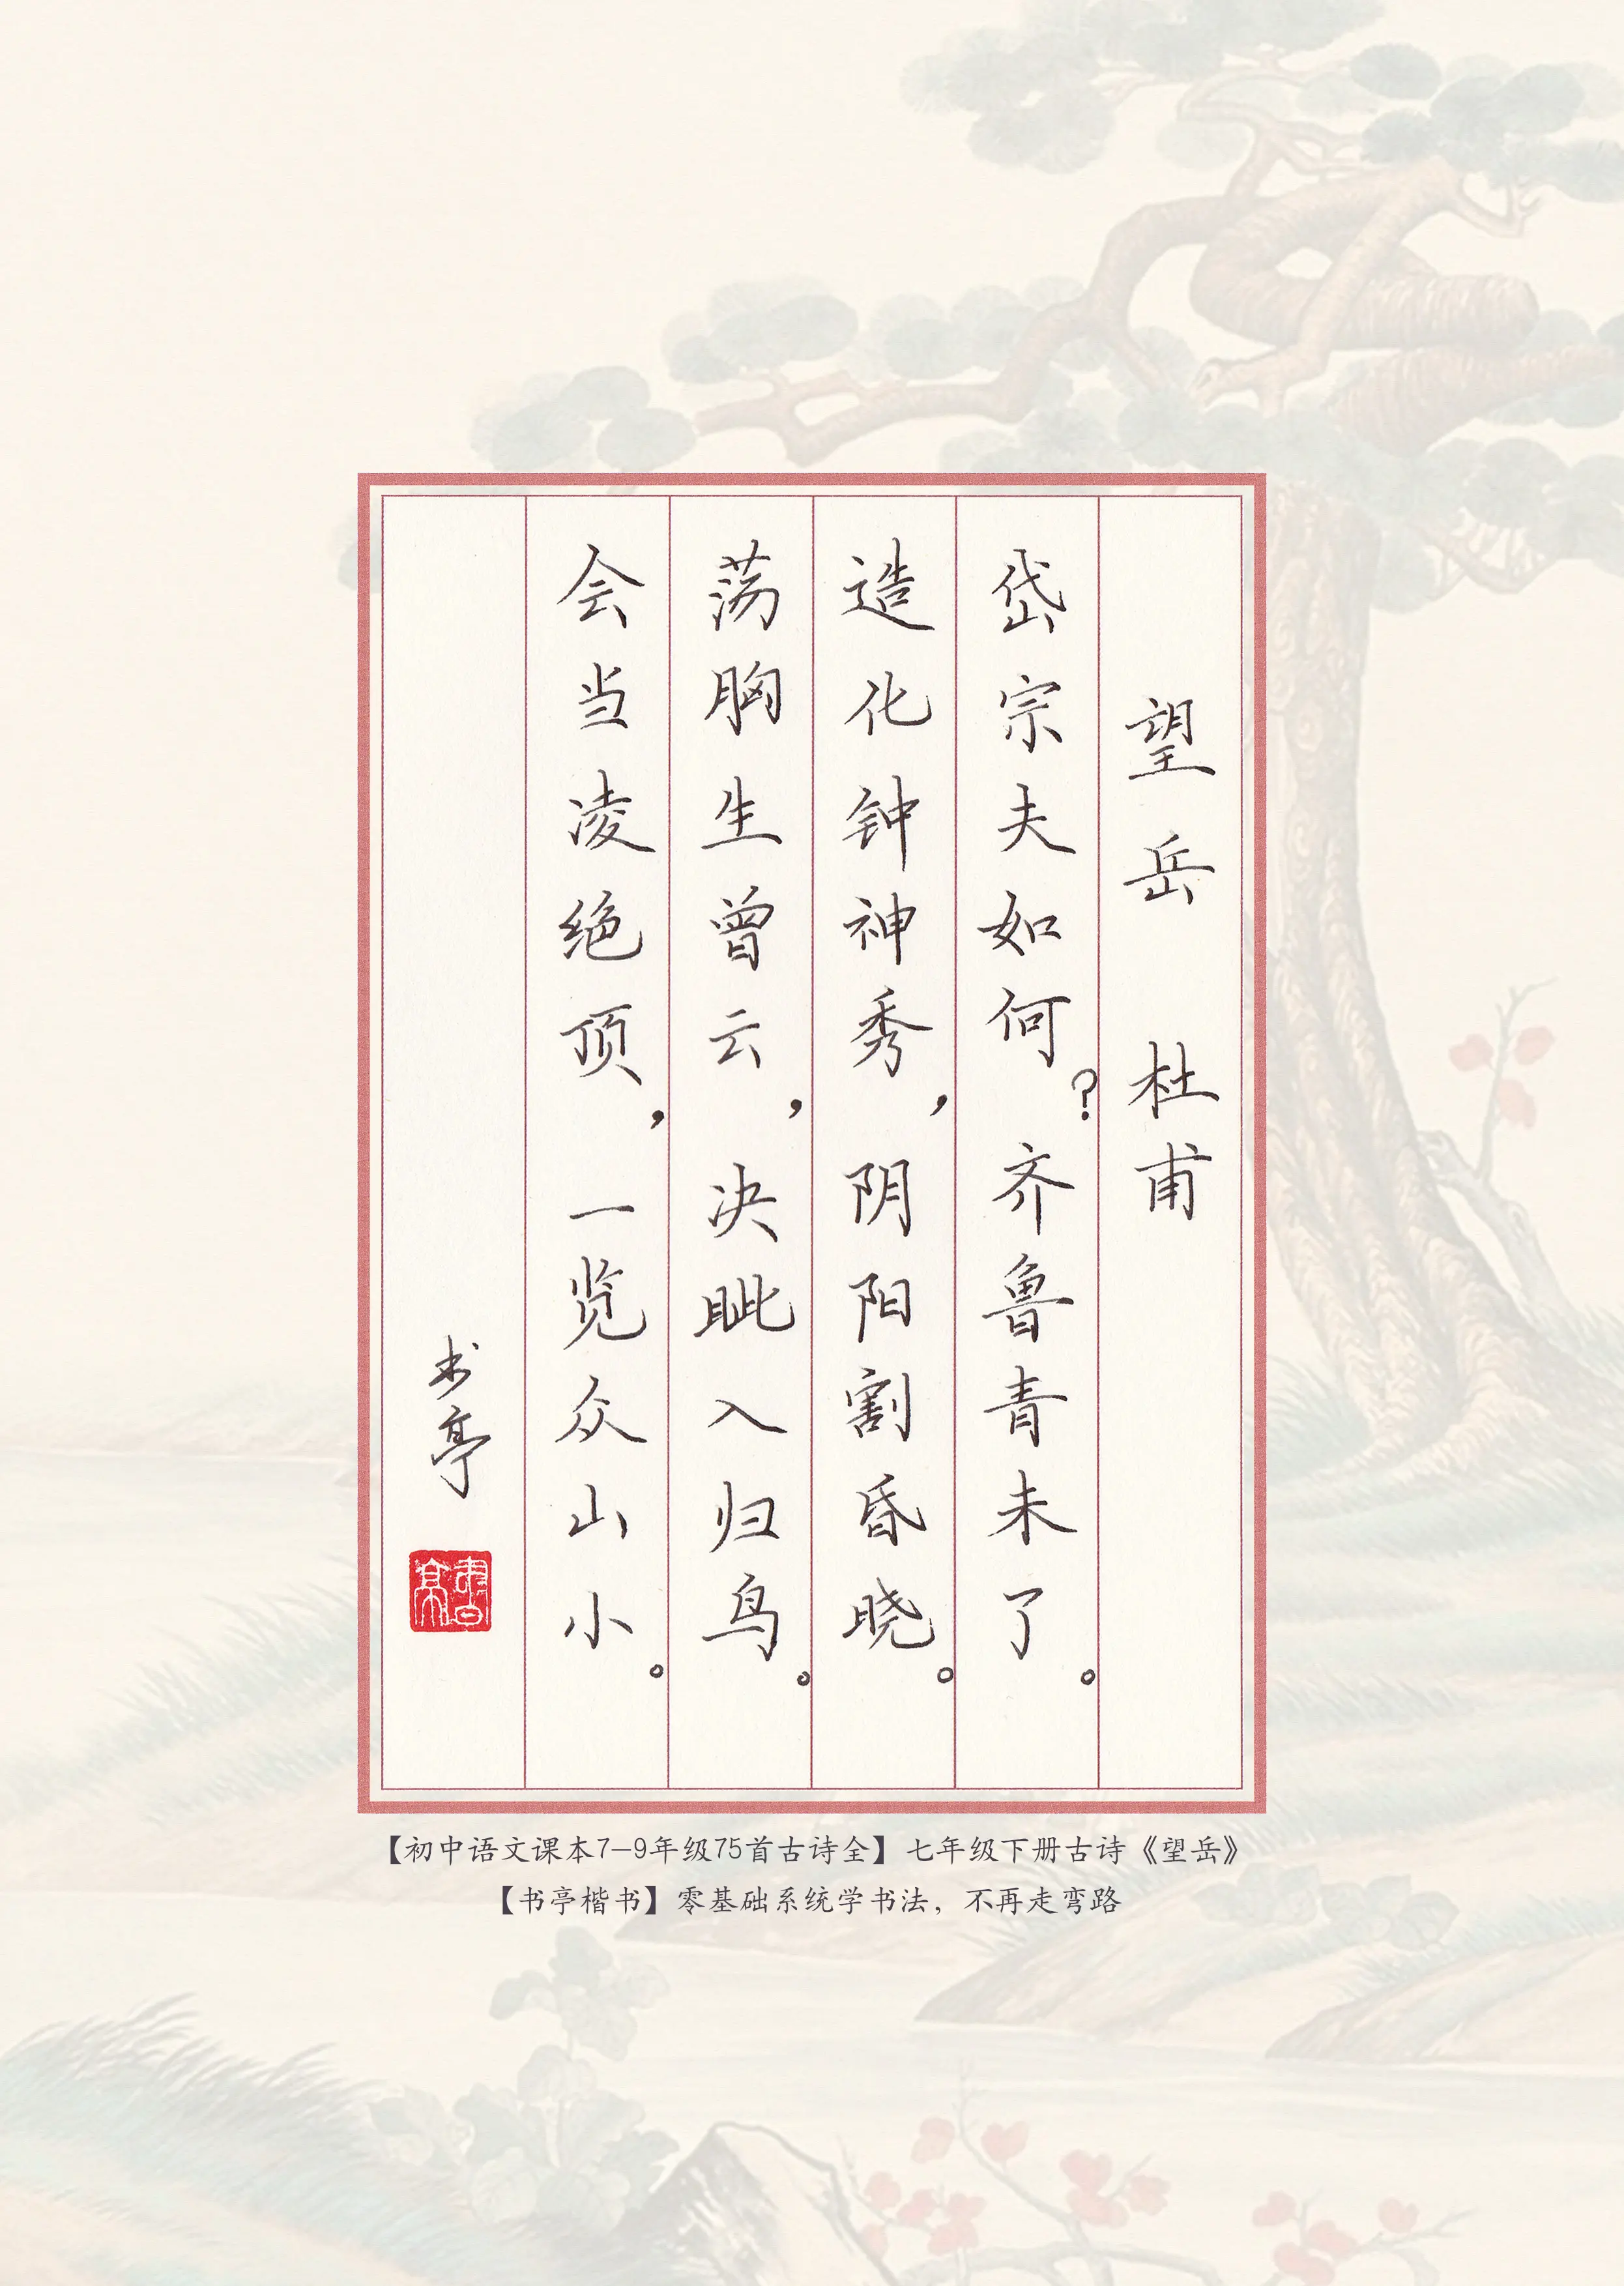 望岳 杜甫
岱宗夫如何?齐鲁青未了。
造化钟神秀,阴阳割昏晓。
荡胸生曾云,决眦入归鸟。
会当凌绝顶,一览众山小。
书亭
書亭
【初中语文课本7-9年级75首古诗全】七年级下册古诗《望岳》
【书亭楷书】零基础系统学书法,不再走弯路